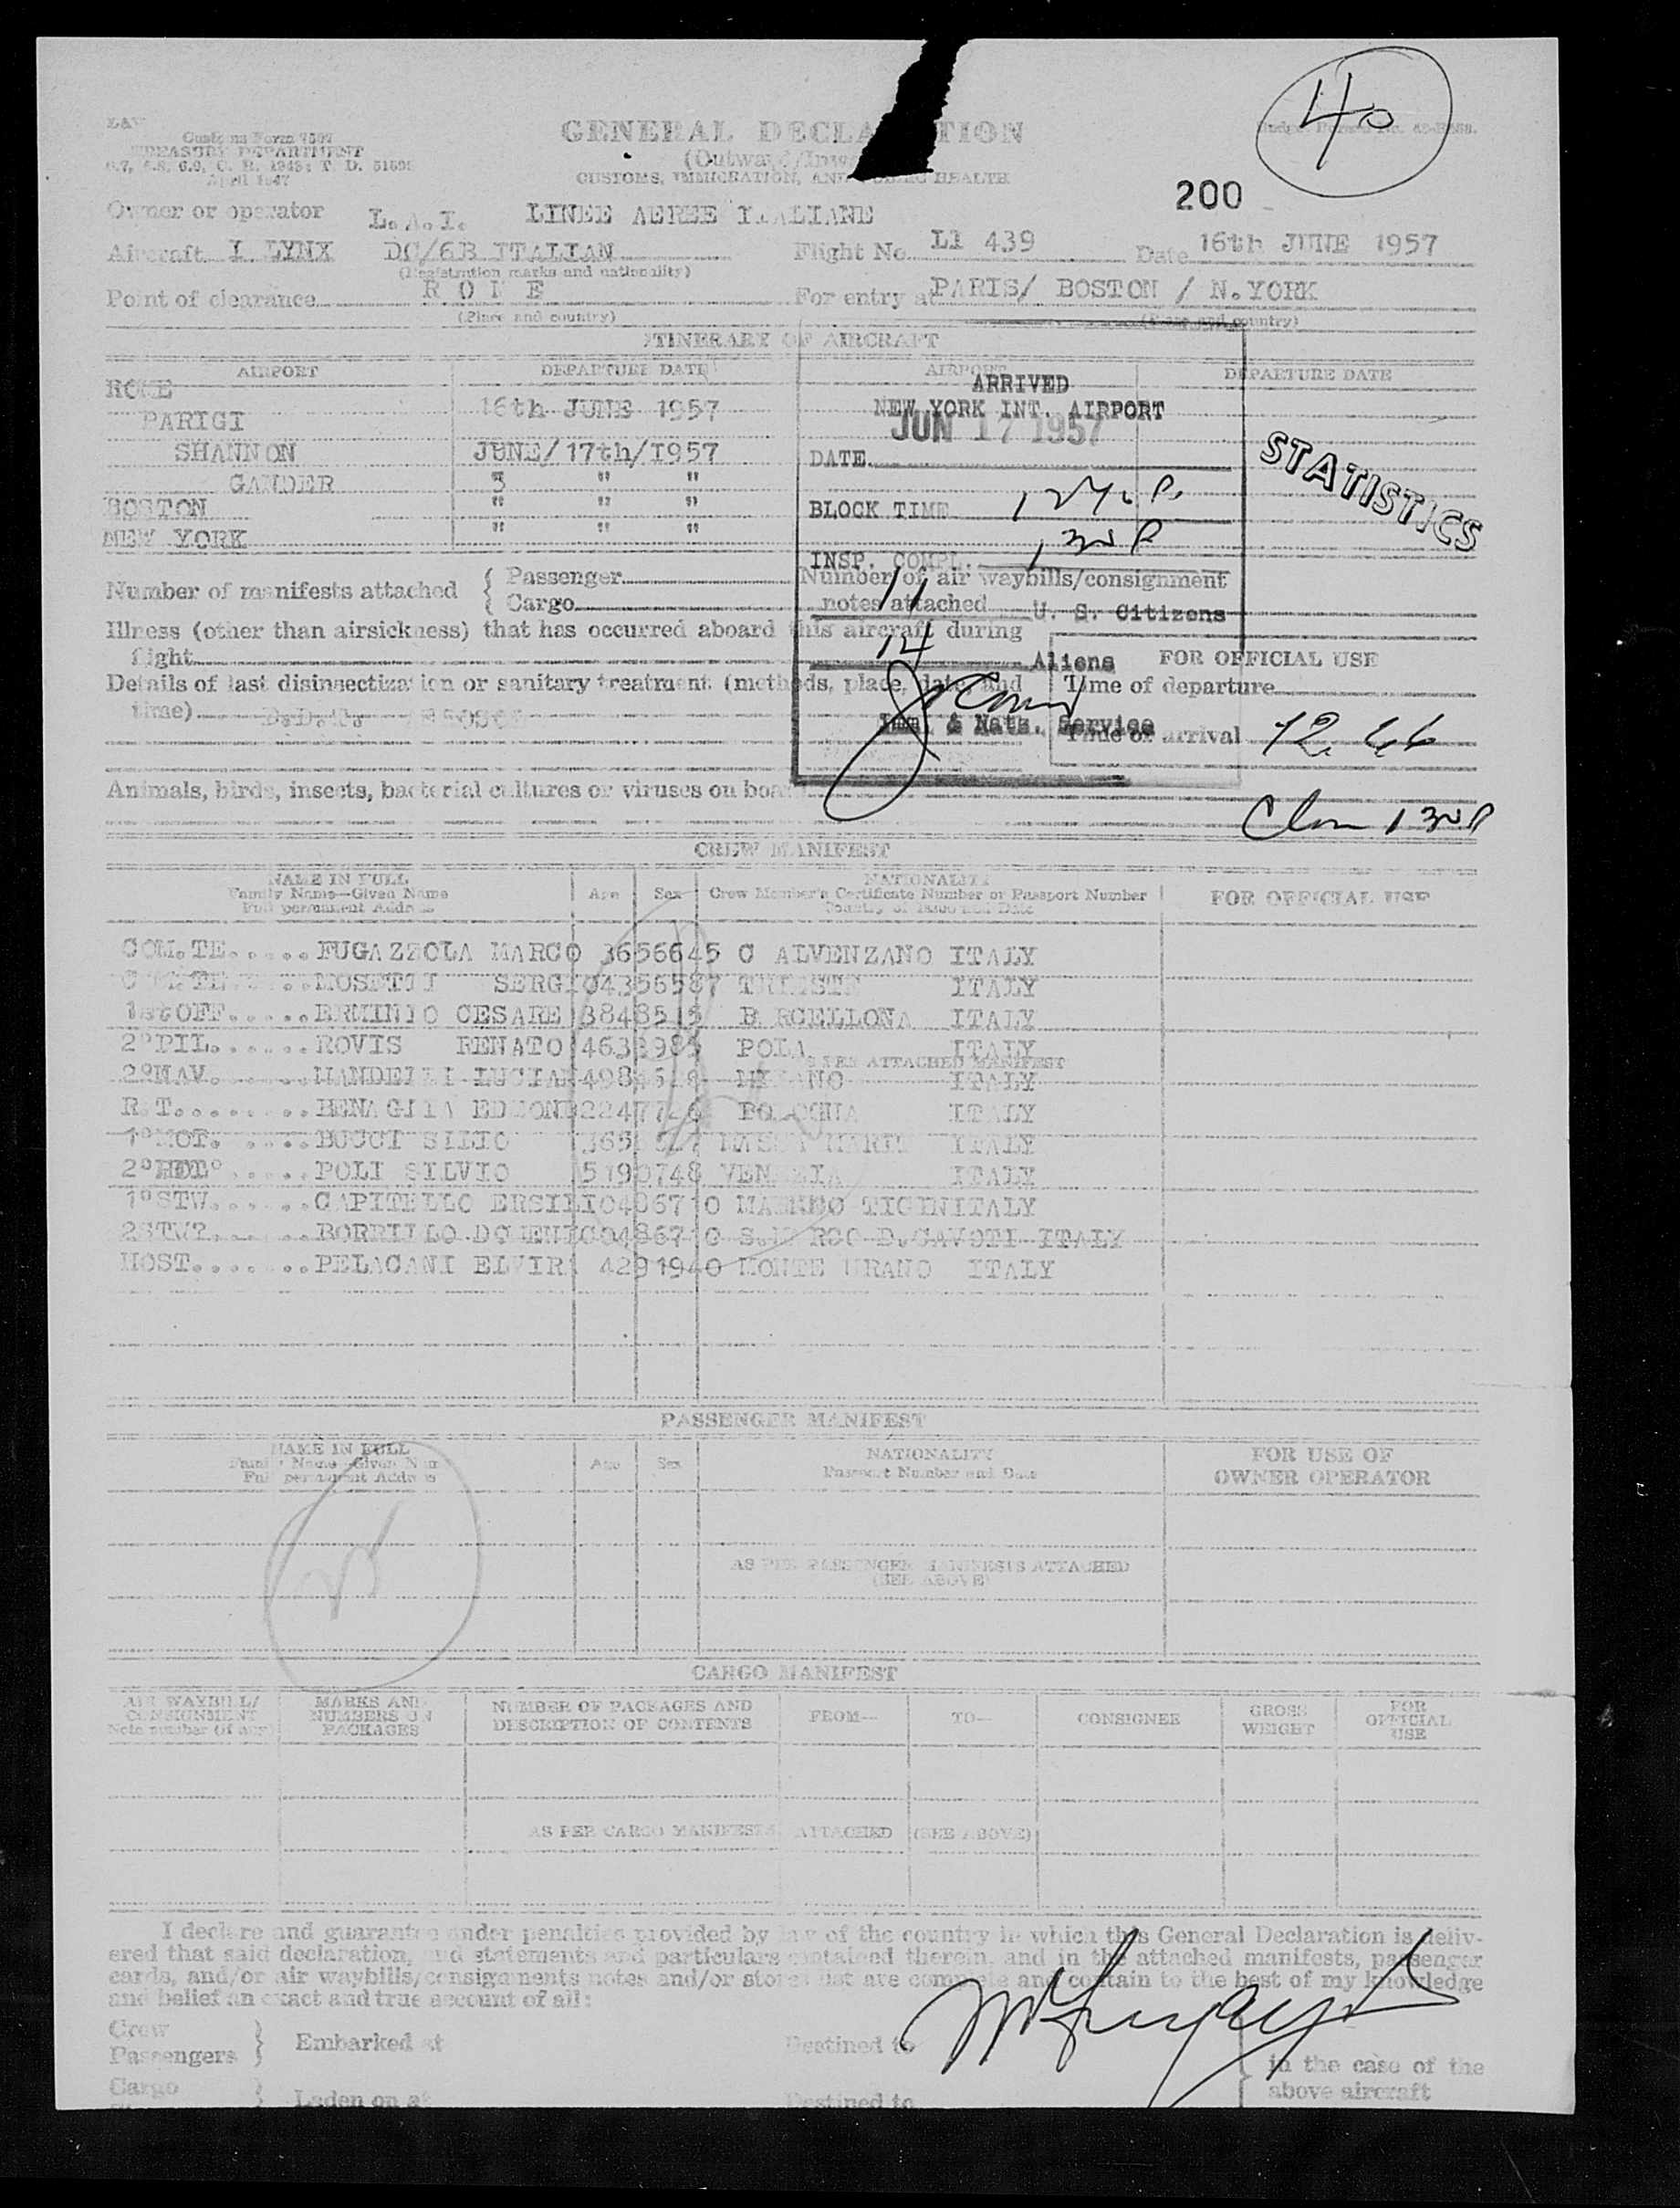 40
GENERAL DECLA TION
Customs Form 7507
TREASURY DEPARTMENT
April 1947
CUSTOMS, IMMIGRATION, AND PUBLIC HEALTH
200
Owner or operator L.A.I. LINEE AEREE ITALIANE
Aircraft I LYNX DC/6B ITALIAN Flight No. LI 439 Date 16th JUNE 1957
(Registration marks and nationality)
Point of clearance ROME For entry at PARIS/ BOSTON / N.YORK
(Place and country) (Place and country)
ITINERARY OF AIRCRAFT
AIRPORT DEPARTURE DATE AIRPORT DEPARTURE DATE
ROME
PARIGI 16th JUNE 1957
SHANNON JUNE/17th/1957
GANDER " " "
BOSTON " " "
NEW YORK " " "
ARRIVED
NEW YORK INT. AIRPORT
JUN 17 1957
DATE
BLOCK TIME
INSP. COMPL.
11 U. S. Citizens
14 Aliens
Imm. & Natz. Service
STATISTICS
Number of manifests attached { Passenger
Cargo
Number of air waybills/consignment
notes attached
Illness (other than airsickness) that has occurred aboard this aircraft during
flight
Details of last disinsectization or sanitary treatment (methods, place, date, and
time) D.D.T.
FOR OFFICIAL USE
Time of departure
Time of arrival
Animals, birds, insects, bacterial cultures or viruses on board
CREW MANIFEST
NAME IN FULL
Family Name—Given Name
Full permanent Address
Age Sex
NATIONALITY
Crew Member's Certificate Number or Passport Number
Country of Issue and Date
FOR OFFICIAL USE
COM.TE......FUGAZZOLA MARCO 3656645 C ALVENZANO ITALY
MOSETTI SERGIO4356587 TRIESTE ITALY
1stOFF......ERMINIO CESARE 3848515 BARCELLONA ITALY
2°PIL.......ROVIS RENATO POLA ITALY
AS PER ATTACHED MANIFEST
2°NAV. MANDELLI LUCIAN MILANO ITALY
R.T.........BENAGLIA EDMOND BOLOGNA ITALY
1°MOT. BUCCI SILIO ITALY
2° POLI SILVIO 5190748 VENEZIA ITALY
1°STW.......CAPITELLO ERSILIO486710 ITALY
BORRILLO DOMENICO486710 S.MARCO D.CAVOTI ITALY
HOST........PELACANI ELVIRA 4291940 MONTE URANO ITALY
PASSENGER MANIFEST
NAME IN FULL
Family Name—Given Name
Full permanent Address
Age Sex
NATIONALITY
Passport Number and Date
FOR USE OF
OWNER OPERATOR
AS PER PASSENGER MANIFESTS ATTACHED
(SEE ABOVE)
CARGO MANIFEST
AIR WAYBILL/
CONSIGNMENT
Note number (if any)
MARKS AND
NUMBERS ON
PACKAGES
NUMBER OF PACKAGES AND
DESCRIPTION OF CONTENTS
FROM—
TO—
CONSIGNEE
GROSS
WEIGHT
FOR
OFFICIAL
USE
AS PER CARGO MANIFESTS ATTACHED (SEE ABOVE)
I declare and guarantee under penalties provided by law of the country in which this General Declaration is deliv-
ered that said declaration, and statements and particulars contained therein, and in the attached manifests, passenger
cards, and/or air waybills/consignments notes and/or stores list are complete and contain to the best of my knowledge
and belief an exact and true account of all:
Crew
Passengers } Embarked at Destined to
in the case of the
above aircraft
Cargo } Laden on at Destined to